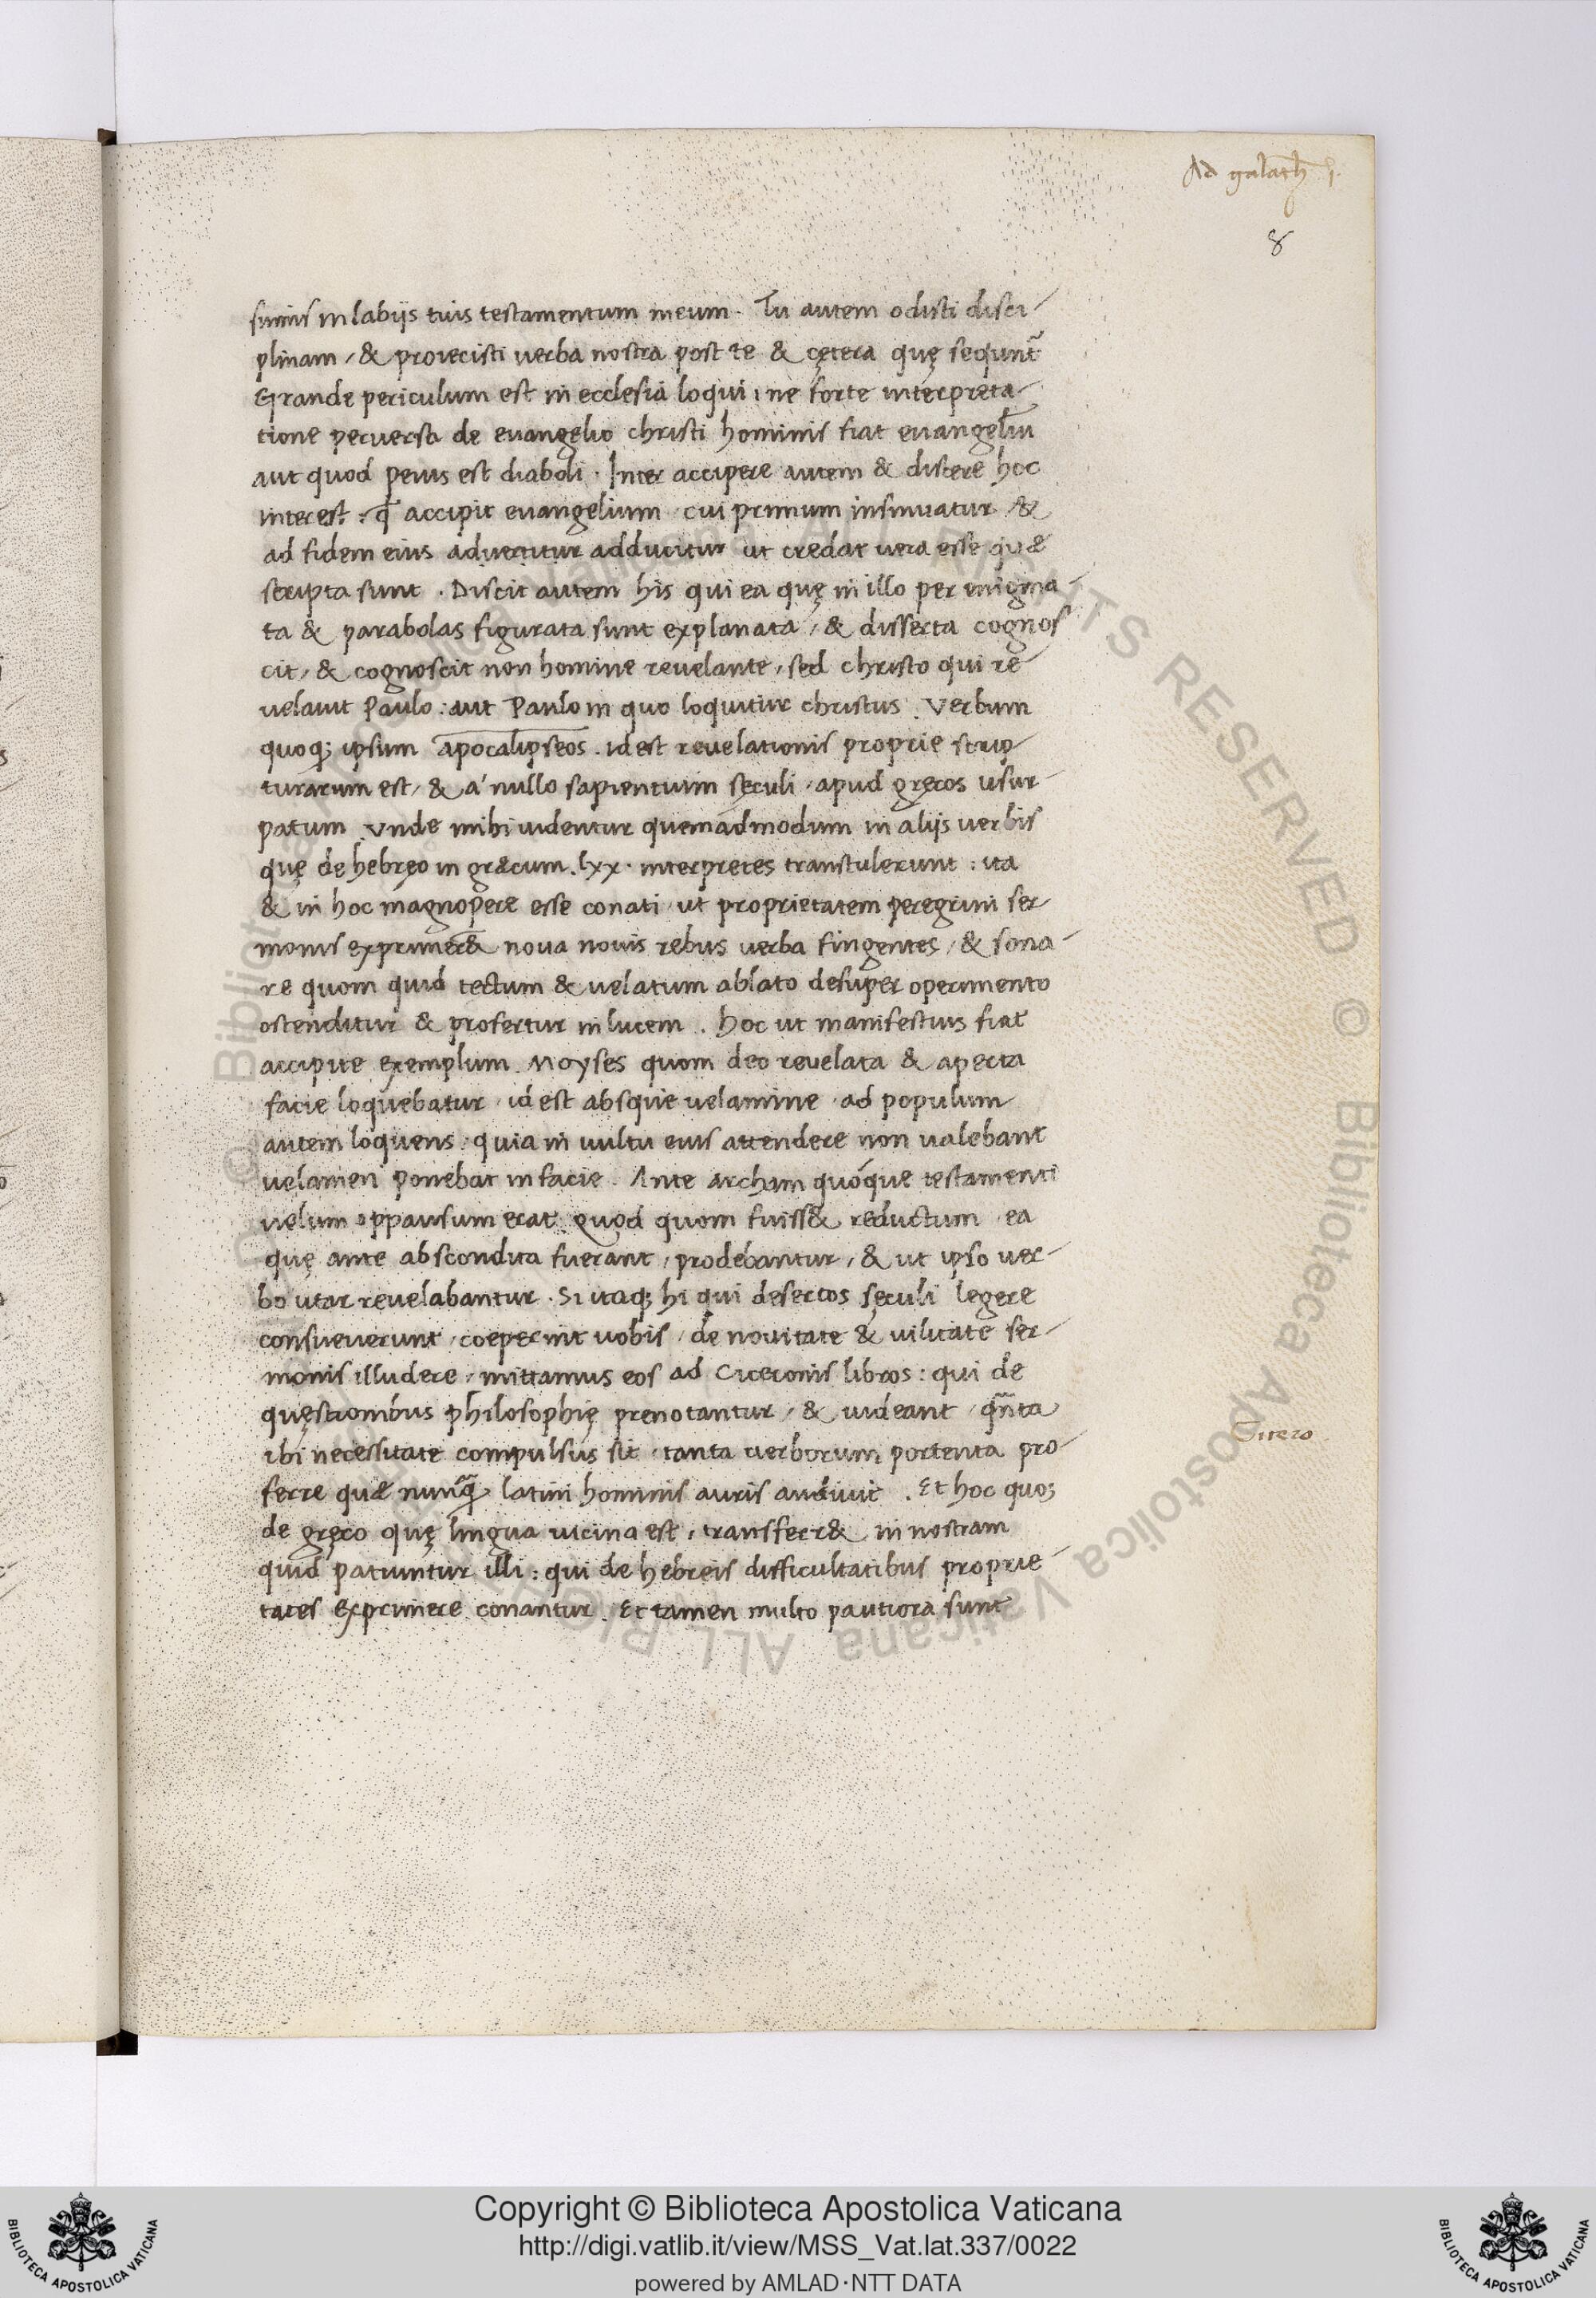 Ad galath̄ 1.
8
sumis in labijs tuis testamentum meum. Tu autem odisti disci-
plinam, & proiecisti verba nostra post te & cętera quę sequunt̄
Grande periculum est in ecclesia loqui, ne forte interpreta-
tione perversa de euangelio christi hominis fiat euangeliū
aut quod peius est diaboli. Inter accipere autem & discere hoc
interest. q̄ accipit evangelium cui primum insinuatur &
ad fidem eius advertitur adducitur ut credat uera esse quæ
scripta sunt. Discit autem his qui ea quę in illo per enigma-
ta & parabolas figurata sunt explanata, & disserta cognos
cit, & cognoscit non homine revelante, sed christo qui re-
uelauit Paulo: aut Paulo in quo loquitur christus. Verbum
quoq; ipsum apocalipseos. id est revelationis proprie scrip-
turarum est, & a' nullo sapientuim sęculi, apud gręcos usur-
patum. Vnde mihi uidentur quemadmodum in alijs verbis
quę de hebręo in græcum. lxx. interpretes transtulerunt: ita
& in hoc magnopere esse conati ut proprietatem peregrini ser-
monis exprimer& nova novis rebus verba fingentes, & sona-
re quom quid tectum & uelatum ablato desuper operimento
ostenditur & profertur in lucem. hoc ut manifestius fiat
accipite exemplum. Moyses quom deo reuelata & aperta
facie loquebatur, id est absque uelamine, ad populum
autem loquens, quia in uultu eius attendere non ualebant
uelamen ponebat in facie. Ante archam quóque testamenti
uelum oppansum erat. quod quom fuiss& reductum ea
quę ante abscondita fuerant, prodebantur, & ut ipso uer-
bo utar revelabantur. Si itaq; hi qui desertos sęculi legere
consueverunt, coeperint uobis, de novitate & uilitate ser-
monis illudere, mittamus eos ad Ciceronis libros: qui de
quęstionibus philosophię prenotantur, & uideant, qn̄ta
ibi necessitate compulsus sit, tanta verborum portenta pro-
Cicero
ferre quæ nunq̄ latini hominis auris audivit. Et hoc quo;
de gręco quę lingua uicina est, transferr& in nostram
quid patiuntur illi: qui de hebreis difficultatibus proprie-
tates exprimere conantur. Et tamen multo pautiora sunt
© Biblioteca Apostolica Vaticana ALL RIGHTS RESERVED
Copyright © Biblioteca Apostolica Vaticana
http://digi.vatlib.it/view/MSS_Vat.lat.337/0022
powered by AMLAD·NTT DATA
BIBLIOTECA APOSTOLICA VATICANA
BIBLIOTECA APOSTOLICA VATICANA